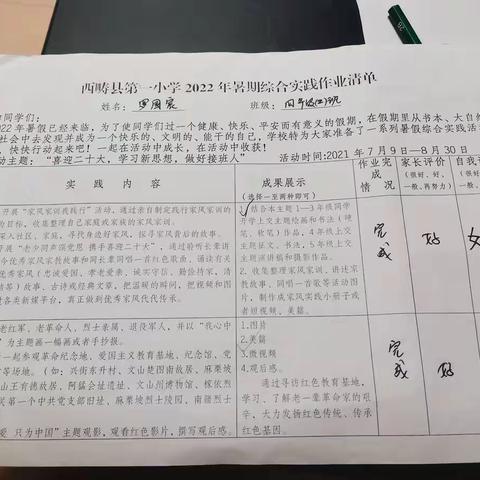 西畴县第一小学 2022 年暑期综合实践作业清单
姓名: 班级: 四年级(二)班
同学们:
022 年暑假已经来临，为了使同学们过一个健康、快乐、平安而有意义的假期，在假期里从书本、大自然
社会中去发现并成为一个快乐的、文明的、能干的自己，学校特为大家准备了一系列暑假综合实践活
，快快行动起来吧！一起在活动中成长，在活动中收获！
动主题：“喜迎二十大，学习新思想，做好接班人” 活动时间:2021 年 7 月 9 日—8 月 30 日
实 践 内 容
成果展示
（选择一至两种即可）
作业完成情况
家长评价
（很好、好、一般、再努力）
自我评
（很好、
一般、再
开展“家风家训我践行”活动，通过亲自制定践行家风家训的
为目标，收集整理自己家庭或家族的家风家训。
深入社区、家庭，寻找身边好家风，探寻家风背后的故事。
开展“老少同声颂党恩 携手喜迎二十大”，通过聆听长辈讲
今优秀家风家教故事和同长辈同唱一首红色歌曲，诵读有关
优秀家风（忠诚爱国、孝老爱亲、诚实守信、勤俭持家、清
洁等）故事、古诗或经典文章，把温暖的瞬间，把视频和图
过各类新媒平台，真正做到优秀家风代代传承。
1.结合本主题 1—3 年级同学
开学上交主题绘画和书法（硬
笔、软笔）作品，4 年级上交
主题征文、书法，5 年级上交
主题演讲稿和摄影作品。
2．收集整理家风家训、讲述
家教故事，同唱一首歌等活动图
片，制作成家风实践小册子或
者短视频，美篇。
完成
好
老红军、老革命人、烈士亲属、退役军人，并以“我心中
为主题画一幅画或者手抄报。
一起参观革命纪念地、爱国主义教育基地、纪念馆、党
等场所。（如：兴街东升村、文山楚图南故居、麻栗坡
山王有德故居、阿猛会址遗址、文山州博物馆、柳依烈
关第一个中共党支部旧址、麻栗坡烈士陵园，南疆烈士
爱 只为中国”主题观影，观看红色影片，撰写观后感。
1.图片
2.美篇
3.微视频
4.观后感。
通过寻访红色教育基地，
学习、了解老一辈革命家的艰
辛，大力发扬红色传统、传承
红色基因。
完成
好